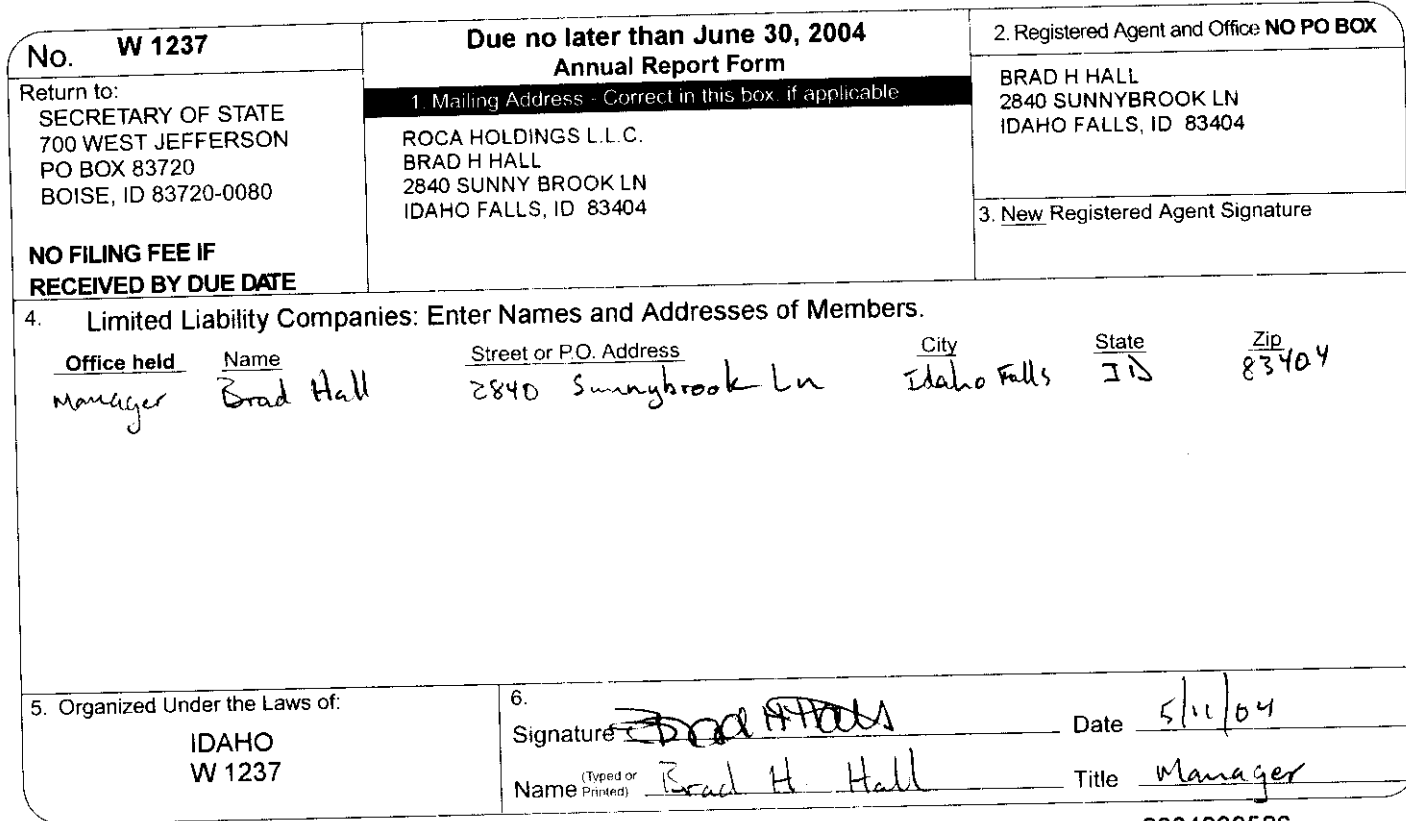 No. W 1237
Return to:
SECRETARY OF STATE
700 WEST JEFFERSON
PO BOX 83720
BOISE, ID 83720-0080
NO FILING FEE IF
RECEIVED BY DUE DATE
Due no later than June 30, 2004
Annual Report Form
1. Mailing Address - Correct in this box, if applicable
ROCA HOLDINGS L.L.C.
BRAD H HALL
2840 SUNNY BROOK LN
IDAHO FALLS, ID 83404
2. Registered Agent and Office NO PO BOX
BRAD H HALL
2840 SUNNYBROOK LN
IDAHO FALLS, ID 83404
3. New Registered Agent Signature
4. Limited Liability Companies: Enter Names and Addresses of Members.
Office held Name Street or P.O. Address City State Zip
Manager Brad Hall 2840 Sunnybrook Ln Idaho Falls ID 83404
5. Organized Under the Laws of:
IDAHO
W 1237
6.
Signature Brad H Hall Date 5/11/04
Name (Typed or Printed) Brad H. Hall Title Manager